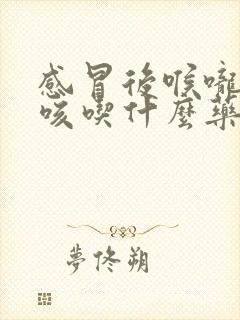 感冒後喉嚨
咳喫什麼藥
夢佟朔